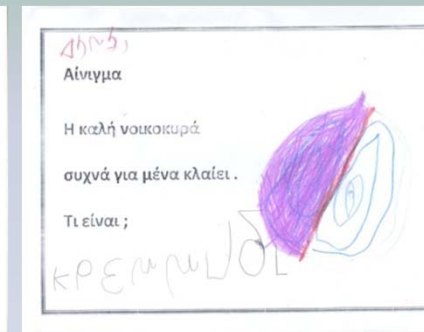 Αίνιγμα
Η καλή νοικοκυρά
συχνά για μένα κλαίει .
Τι είναι ;
κρεμμυδι